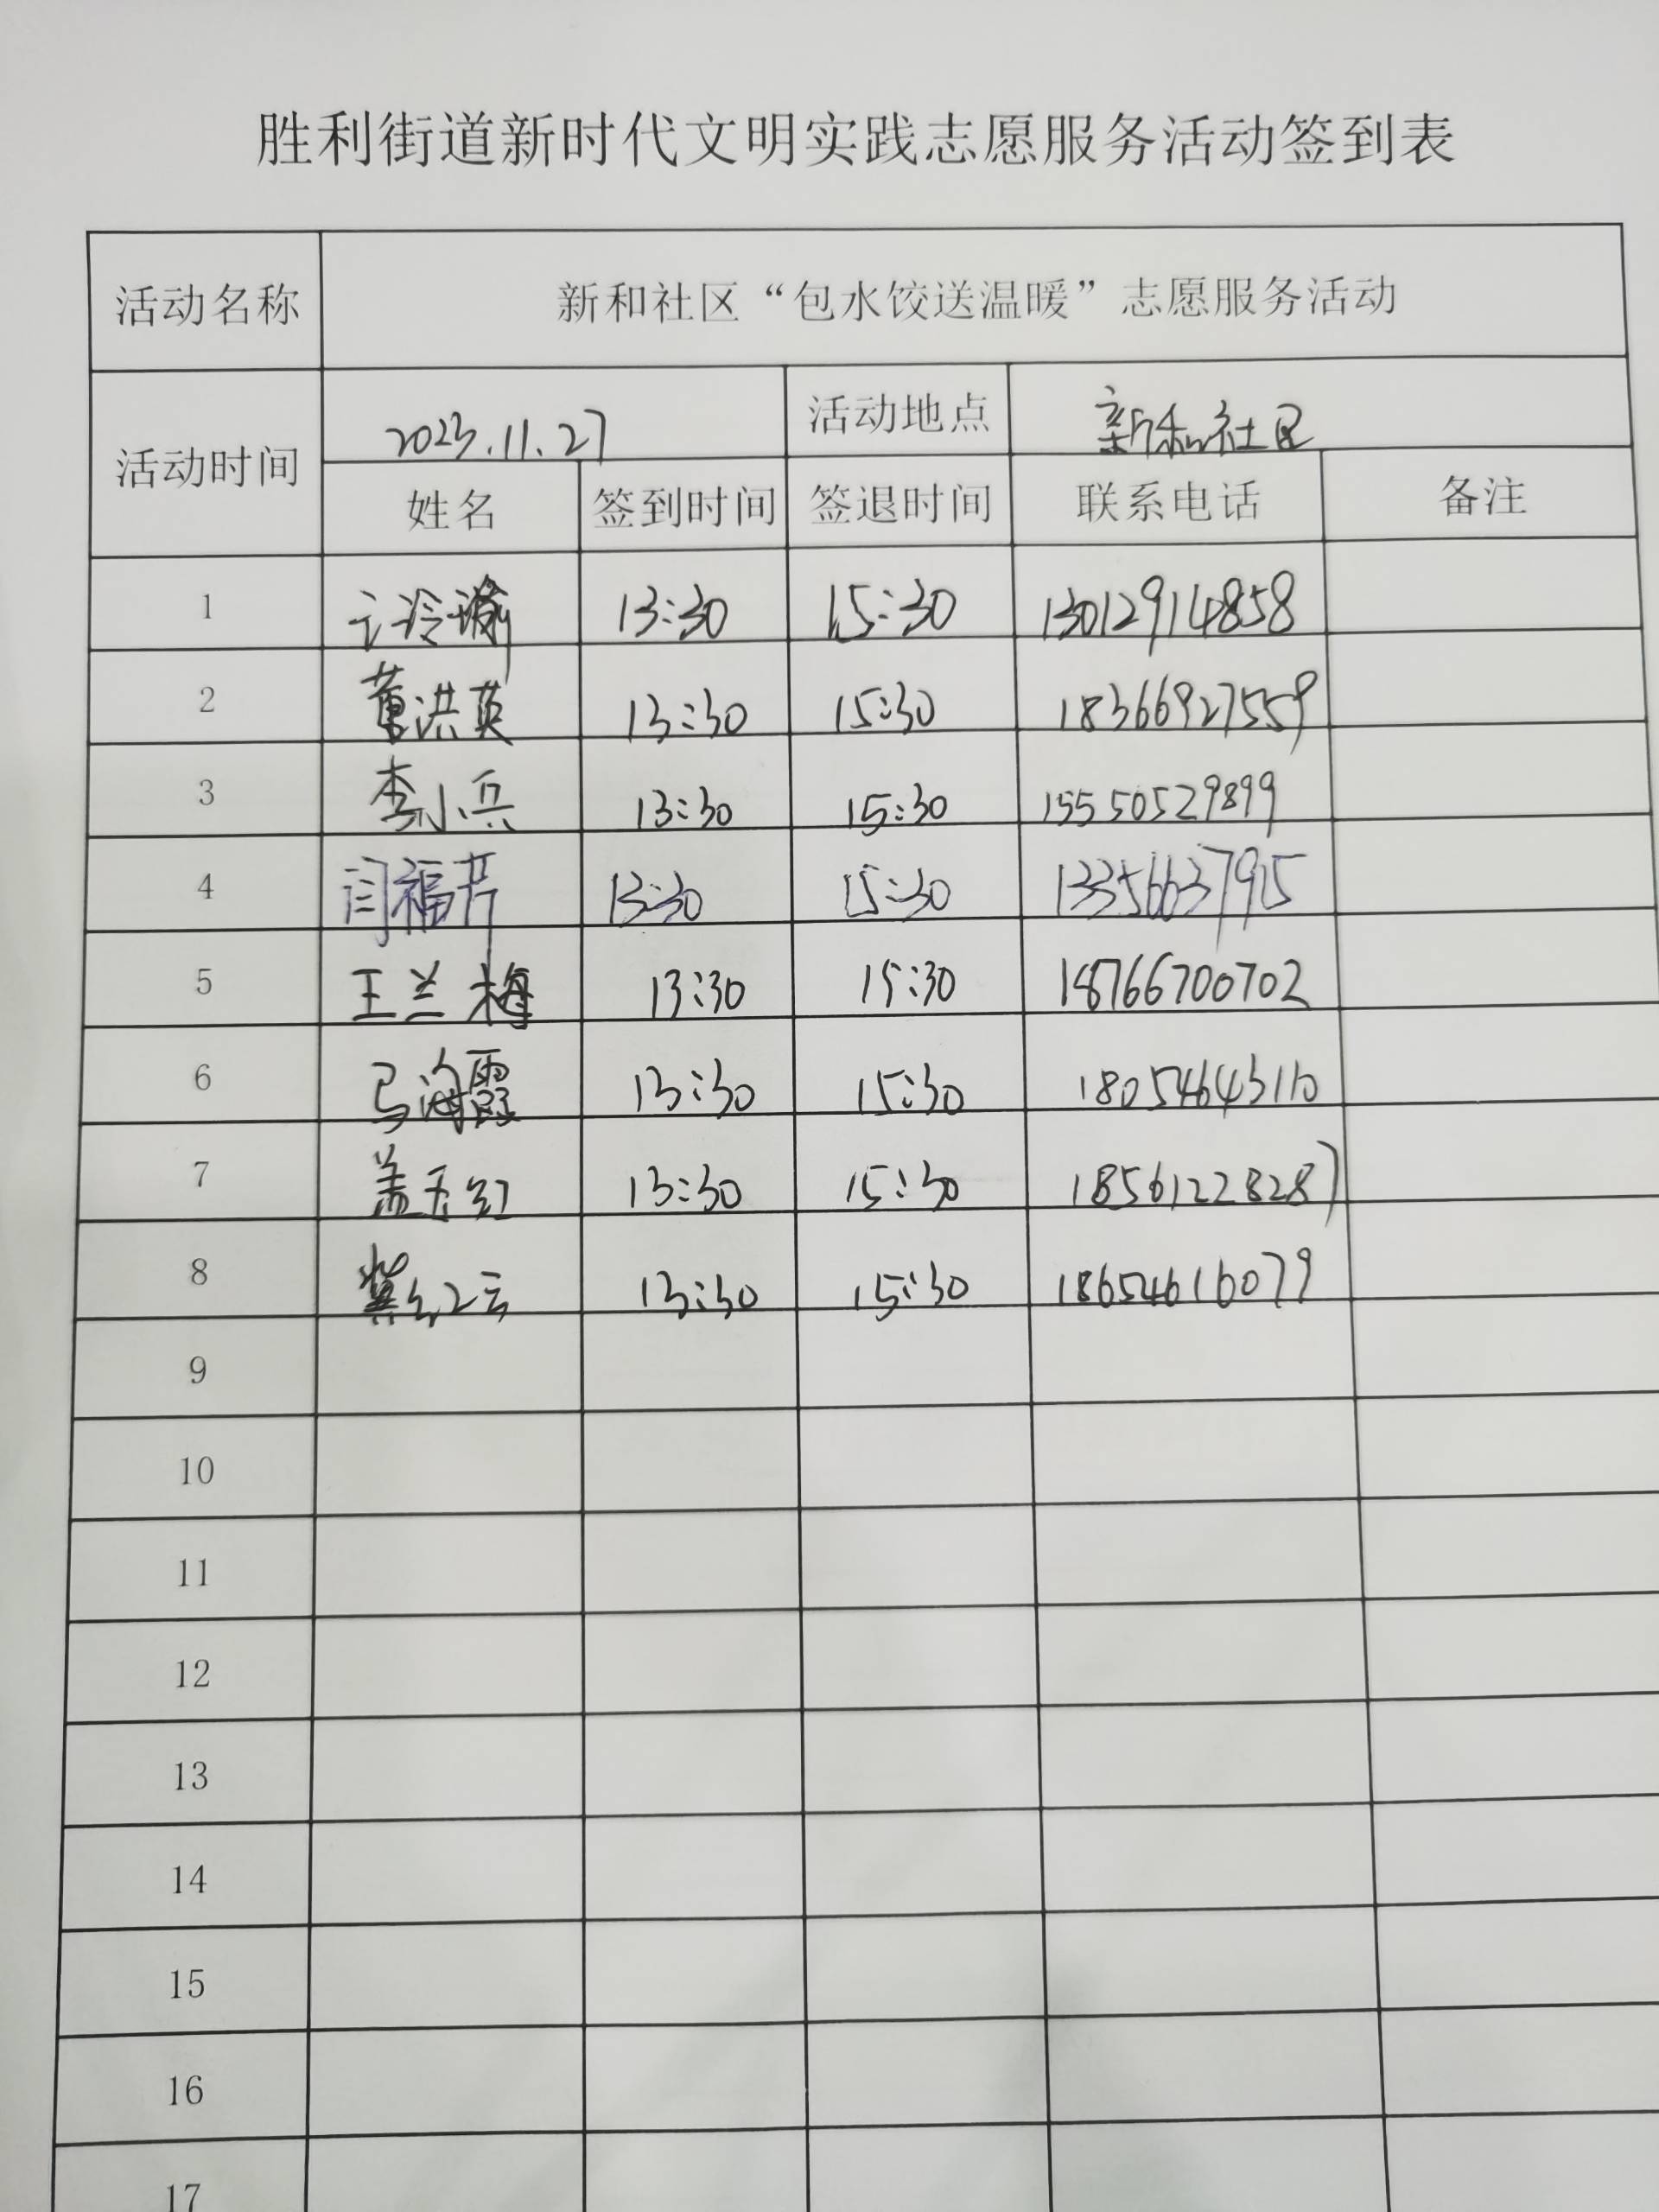 胜利街道新时代文明实践志愿服务活动签到表
活动名称 新和社区“包水饺送温暖”志愿服务活动
活动时间 2023.11.27 活动地点 新和社区
姓名 签到时间 签退时间 联系电话 备注
1 13:30 15:30 13012914858
2 董洪英 13:30 15:30 18366927559
3 李小兵 13:30 15:30 15550529899
4 闫福芹 13:30 15:30 13356637915
5 王兰梅 13:30 15:30 18766700702
6 马海霞 13:30 15:30 18054643110
7 盖玉红 13:30 15:30 18561228287
8 冀红云 13:30 15:30 18654616079
9
10
11
12
13
14
15
16
17